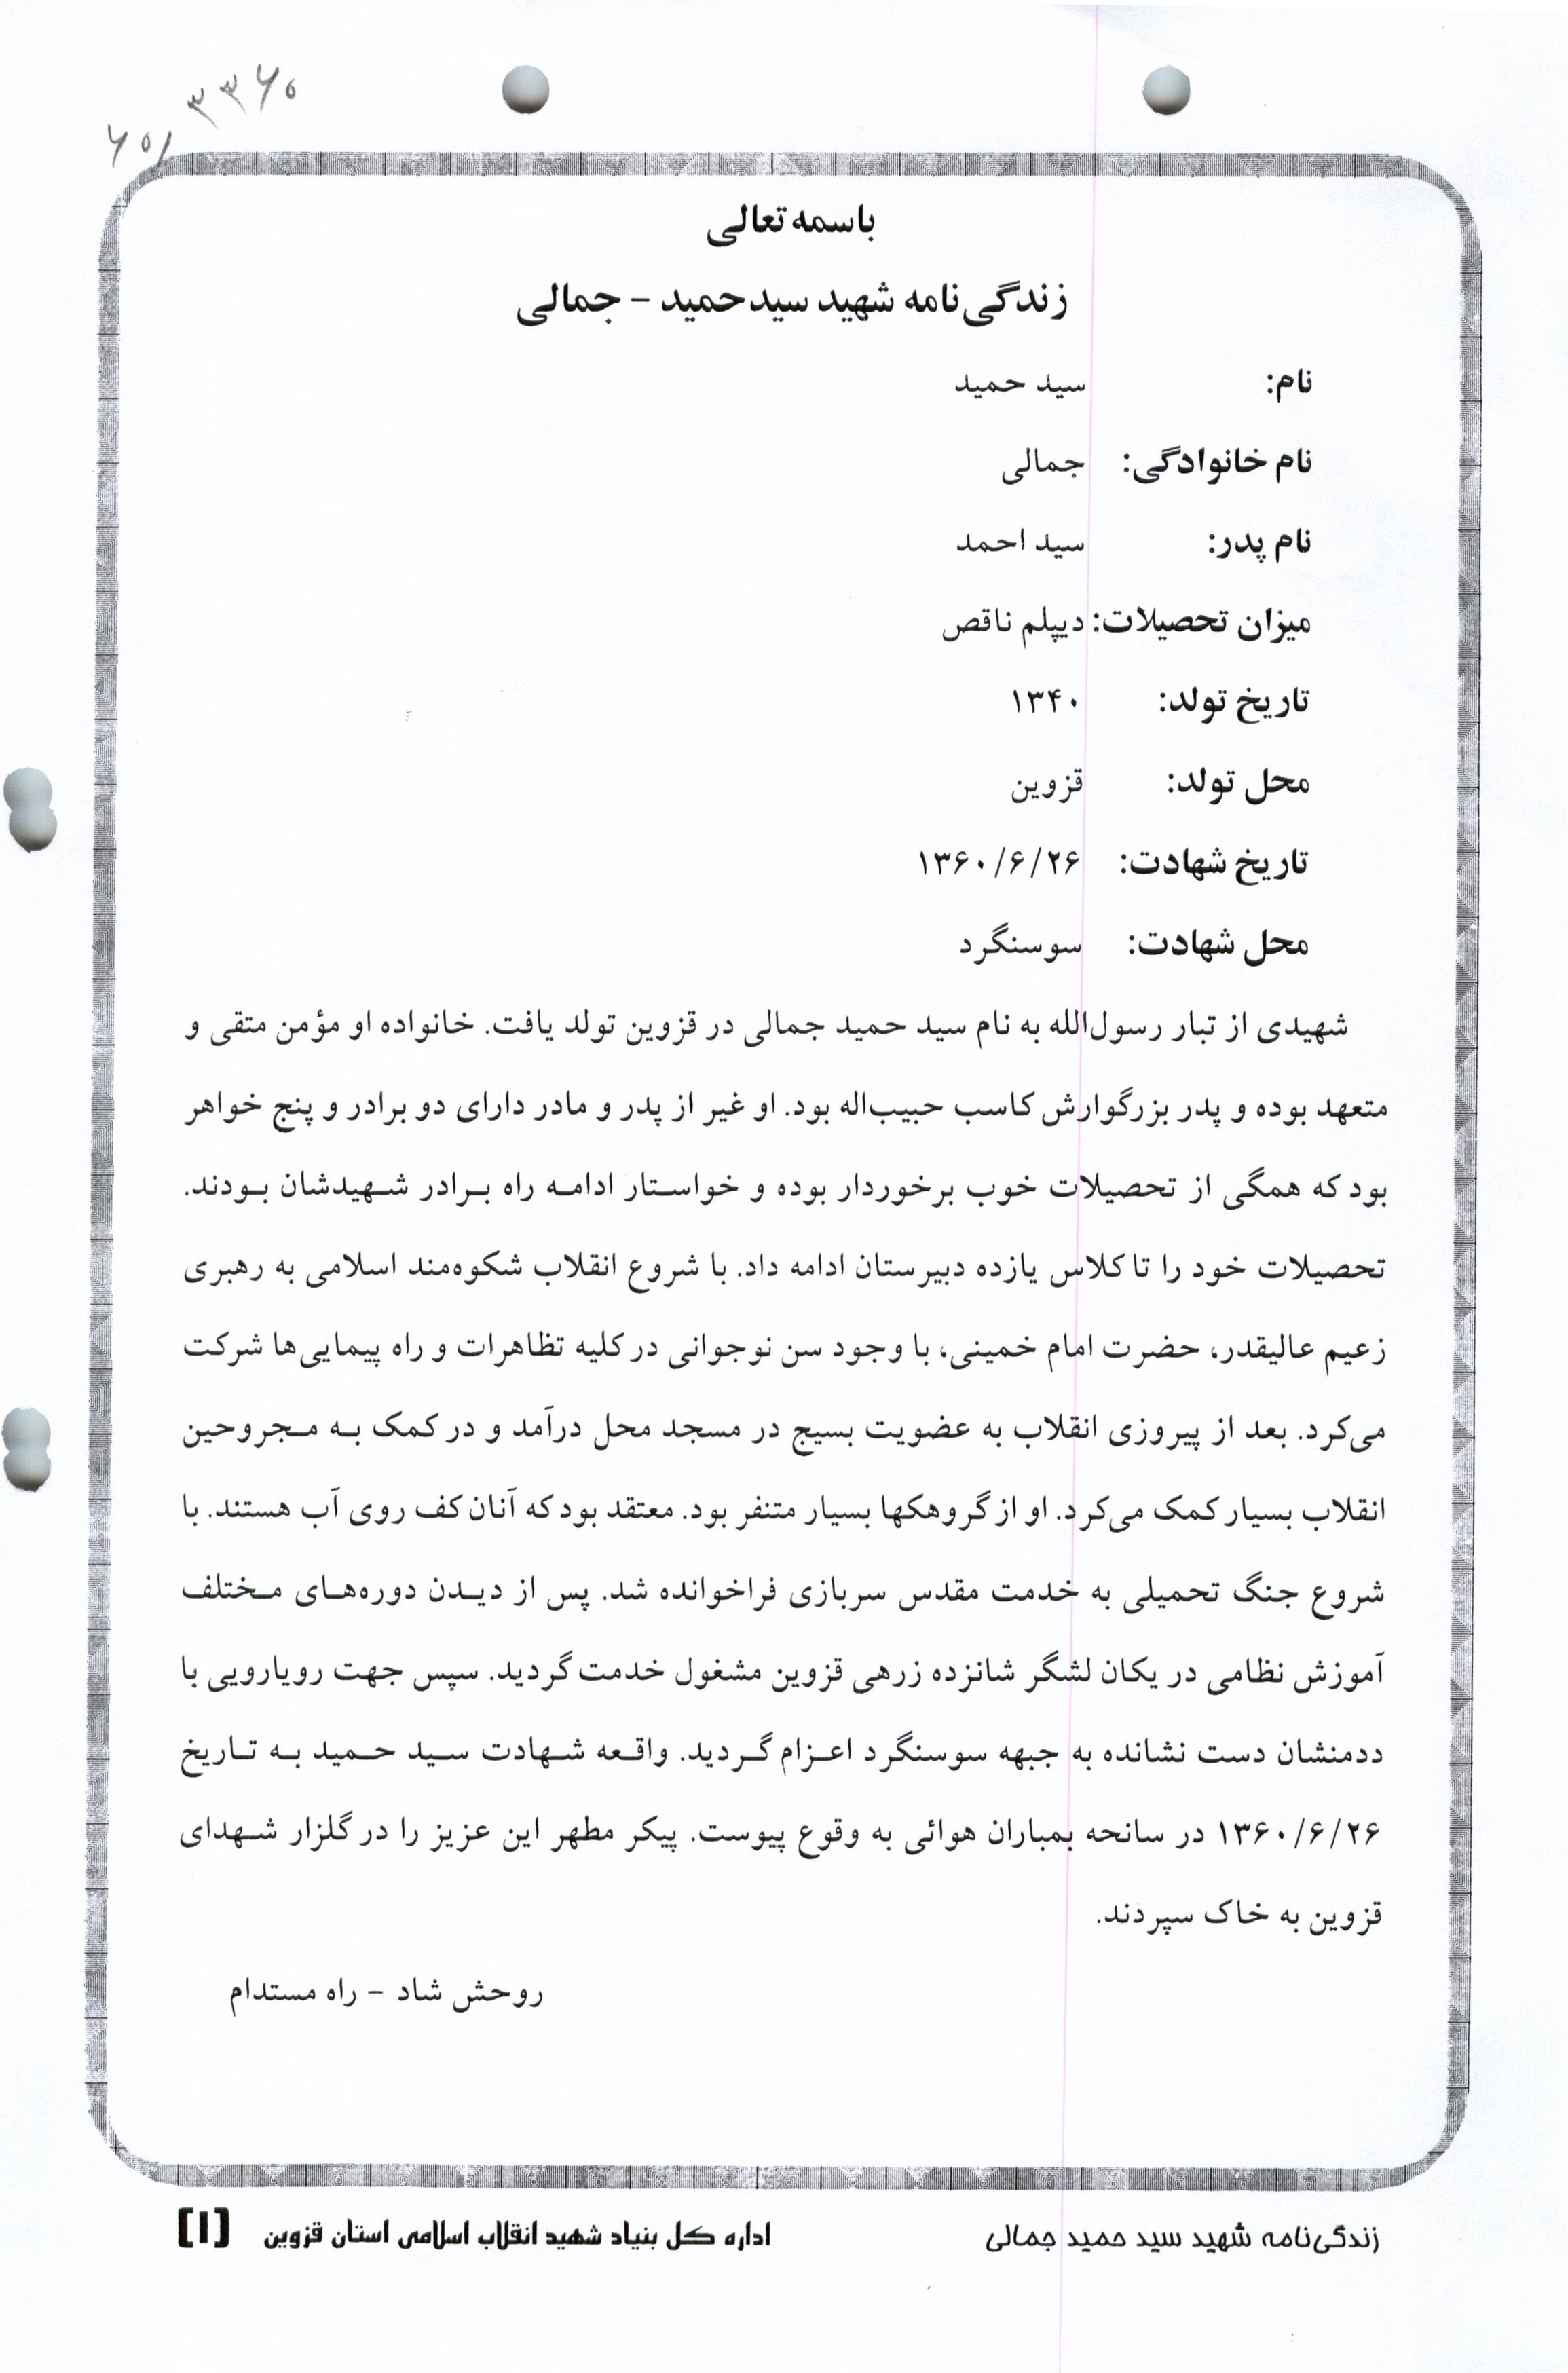 ۳۳۶۰
۶۵۱
باسمه تعالی
زندگی‌نامه شهید سیدحمید - جمالی
نام: سید حمید
نام خانوادگی: جمالی
نام پدر: سید احمد
میزان تحصیلات: دیپلم ناقص
تاریخ تولد: ۱۳۴۰
محل تولد: قزوین
تاریخ شهادت: ۱۳۶۰/۶/۲۶
محل شهادت: سوسنگرد
شهیدی از تبار رسول‌الله به نام سید حمید جمالی در قزوین تولد یافت. خانواده او مؤمن متقی و
متعهد بوده و پدر بزرگوارش کاسب حبیب‌اله بود. او غیر از پدر و مادر دارای دو برادر و پنج خواهر
بود که همگی از تحصیلات خوب برخوردار بوده و خواستار ادامه راه برادر شهیدشان بودند.
تحصیلات خود را تا کلاس یازده دبیرستان ادامه داد. با شروع انقلاب شکوه‌مند اسلامی به رهبری
زعیم عالیقدر، حضرت امام خمینی، با وجود سن نوجوانی در کلیه تظاهرات و راه پیمایی‌ها شرکت
می‌کرد. بعد از پیروزی انقلاب به عضویت بسیج در مسجد محل درآمد و در کمک به مجروحین
انقلاب بسیار کمک می‌کرد. او از گروهکها بسیار متنفر بود. معتقد بود که آنان کف روی آب هستند. با
شروع جنگ تحمیلی به خدمت مقدس سربازی فراخوانده شد. پس از دیدن دوره‌های مختلف
آموزش نظامی در یکان لشگر شانزده زرهی قزوین مشغول خدمت گردید. سپس جهت رویارویی با
ددمنشان دست نشانده به جبهه سوسنگرد اعزام گردید. واقعه شهادت سید حمید به تاریخ
۱۳۶۰/۶/۲۶ در سانحه بمباران هوائی به وقوع پیوست. پیکر مطهر این عزیز را در گلزار شهدای
قزوین به خاک سپردند.
روحش شاد - راه مستدام
زندگی‌نامه شهید سید حمید جمالی اداره کل بنیاد شهید انقلاب اسلامی استان قزوین [۱]